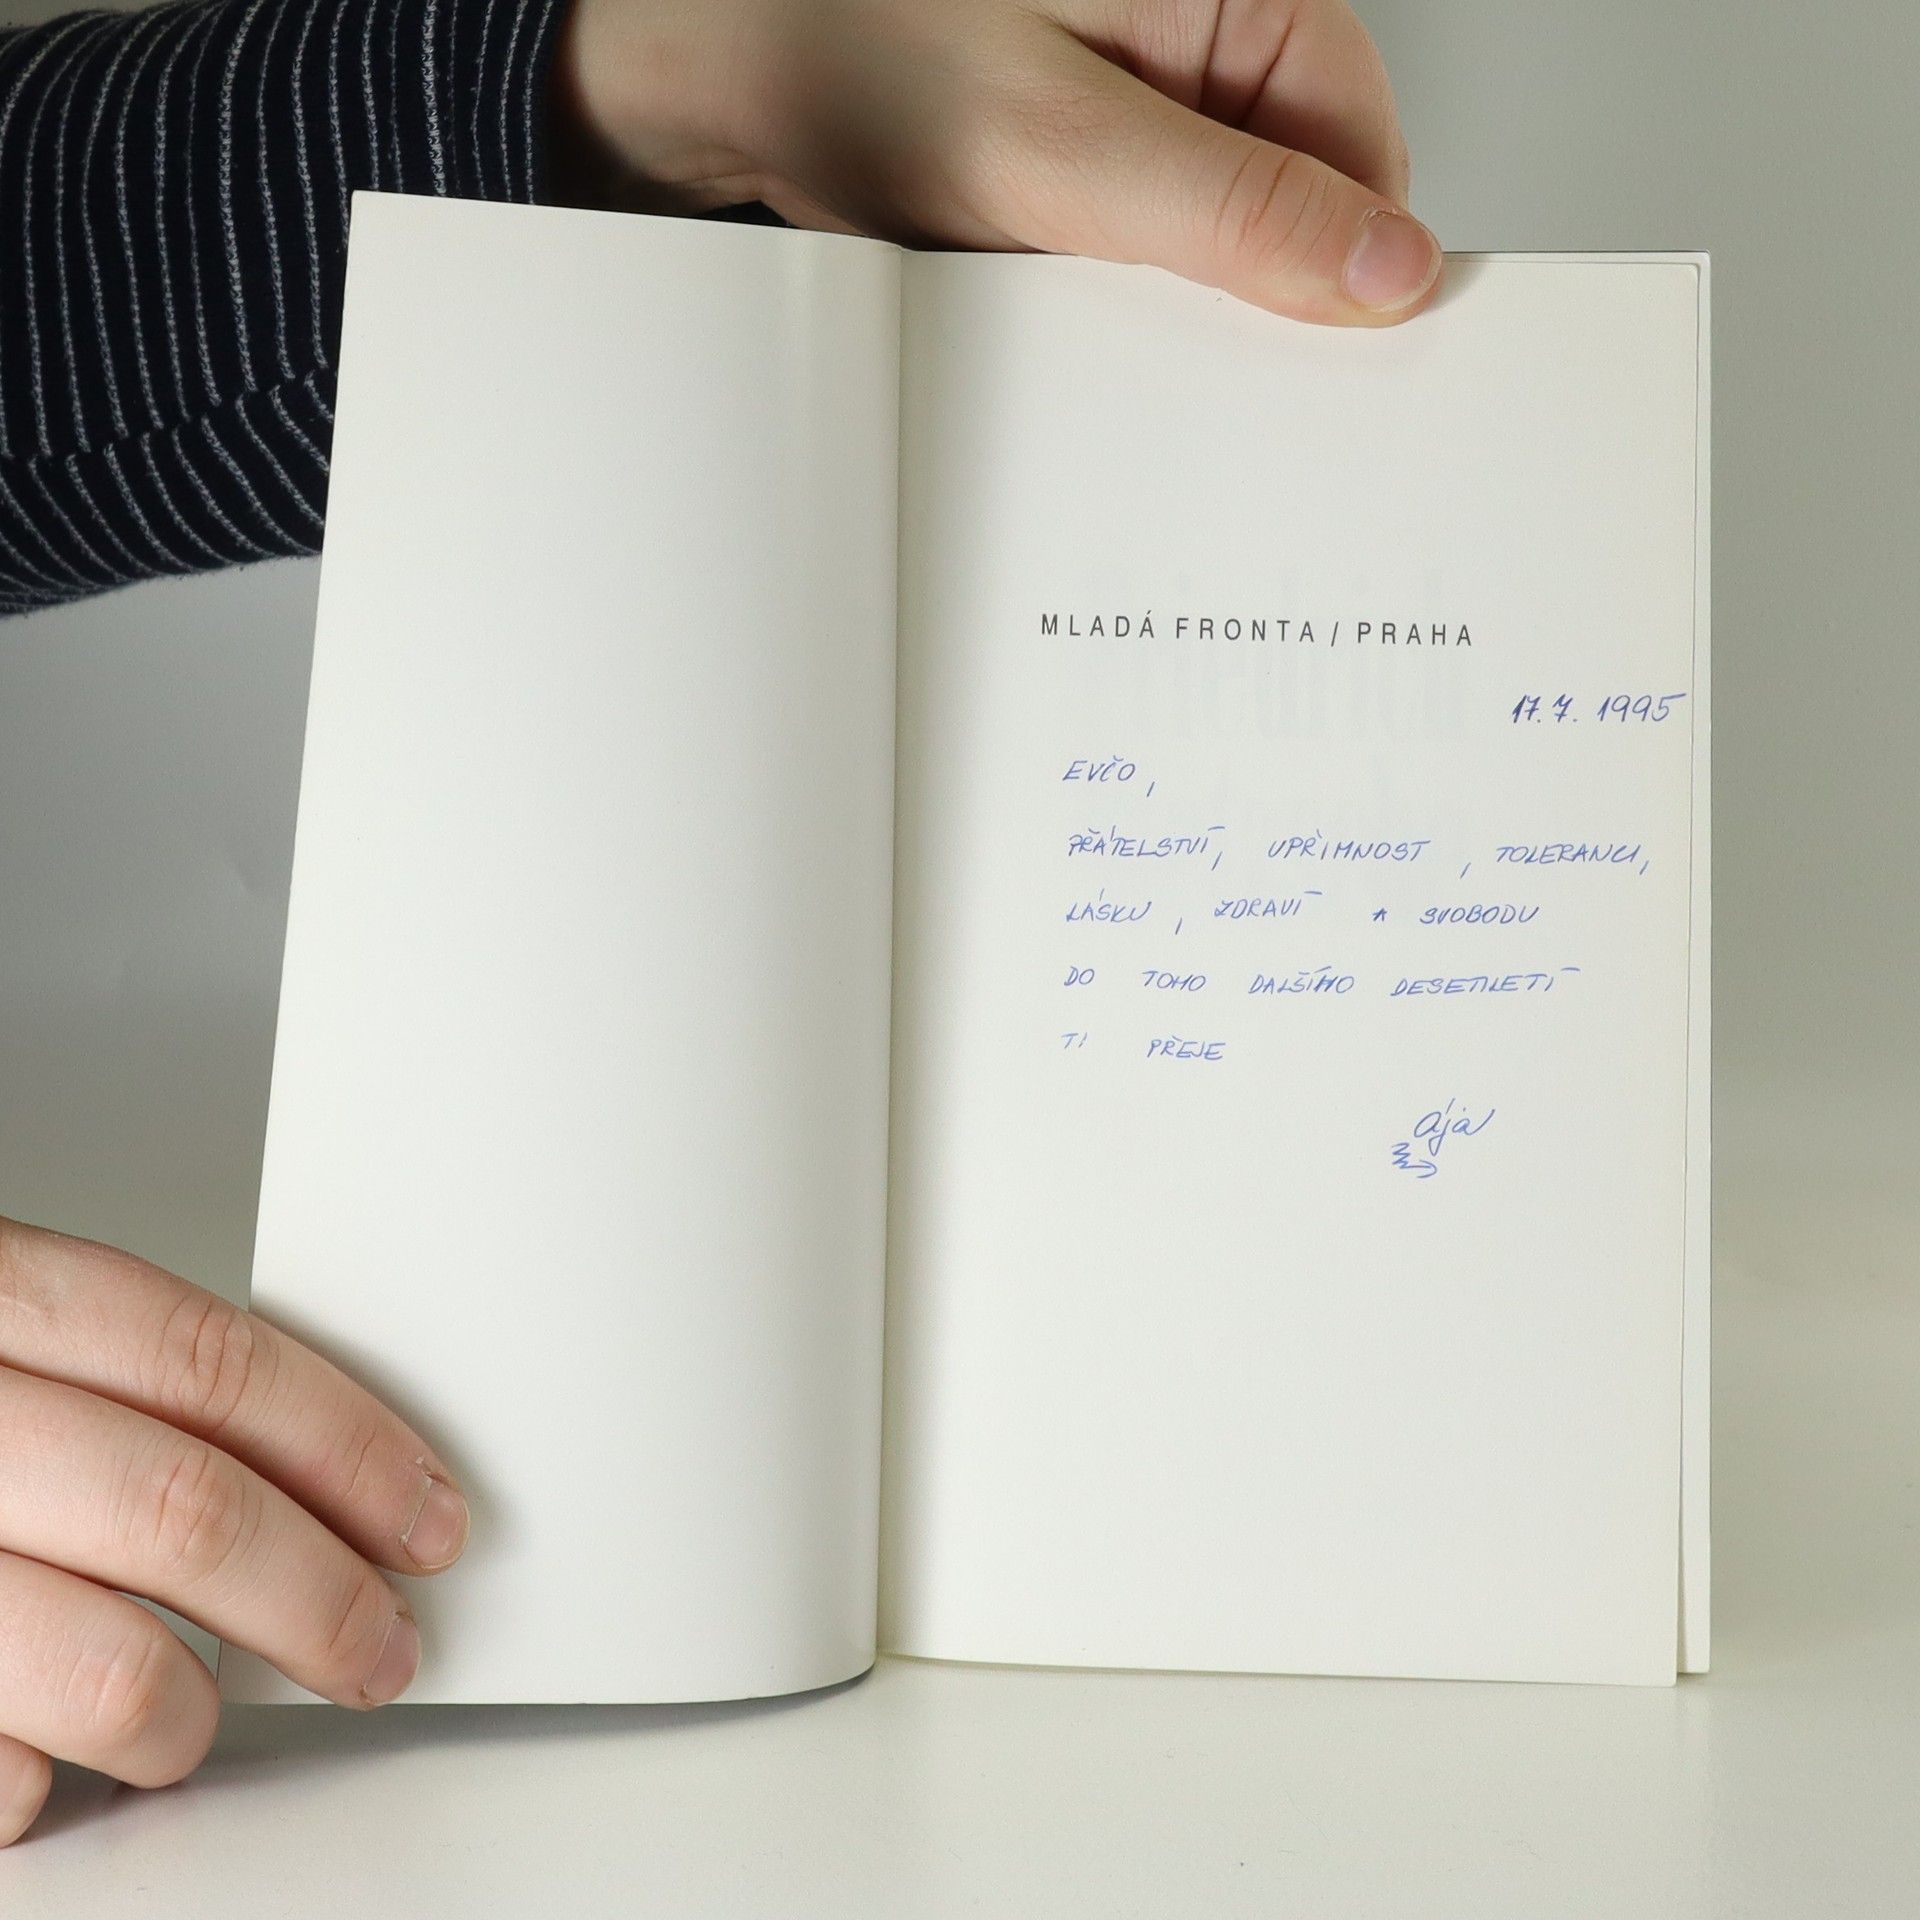 MLADÁ FRONTA / PRAHA
17.7. 1995
EVČO,
PŘÁTELSTVÍ, UPŘIMNOST, TOLERANCI,
LÁSKU, ZDRAVÍ A SVOBODU
DO TOHO DALŠÍHO DESETILETÍ
TI PŘEJE
Ája